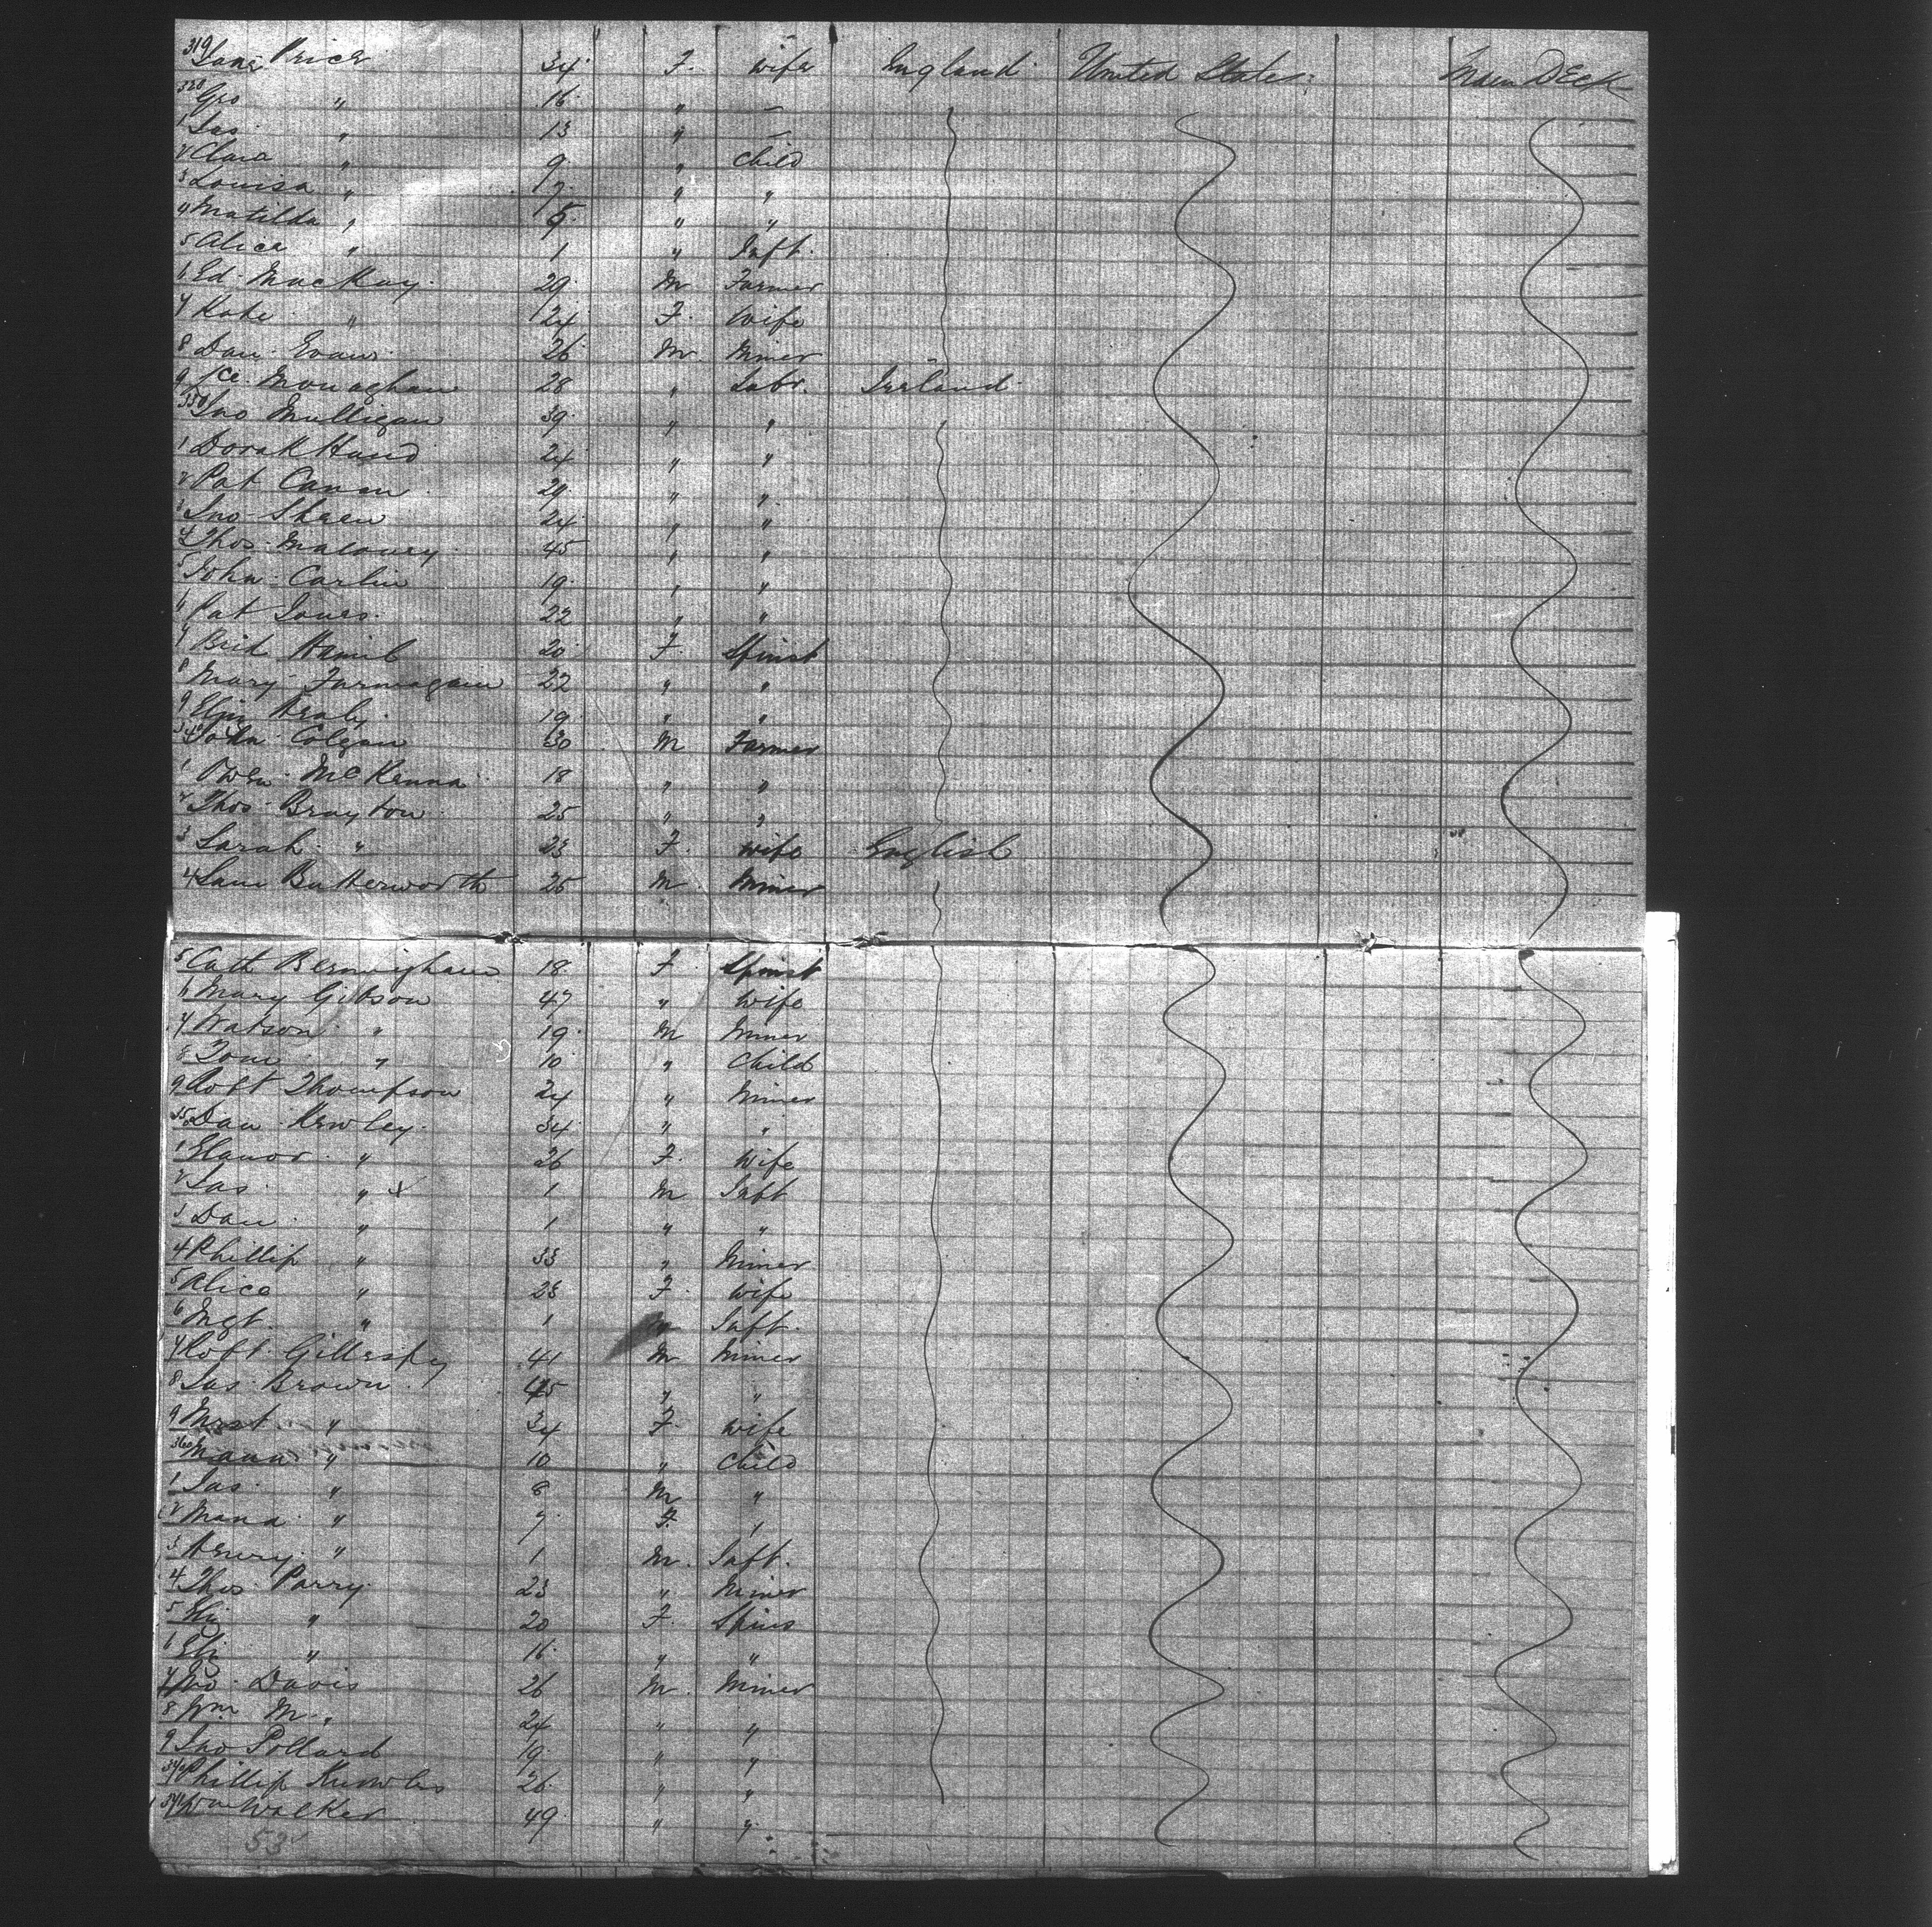 319 Jane Price 34 F. wife England United States Main Deck
320 Geo " 16 " —
1 Jas " 13 " —
2 Clara " 9 " Child
3 Louisa " 7 " "
4 Matilda " 5 " "
5 Alice " 1 " Inft.
6 Ed. MacKay 29 M Farmer
7 Kate " 24 F. Wife
8 Dan Evans 26 M. Miner
9 Monaghan 28 " Labr. Ireland
330 Jno Mulligan 39 " "
1 Hand 24 " "
2 Pat Canan 29 " "
3 Jno Sheen 24 " "
4 Thos Maloney 45 " "
5 John Carlin 19 " "
6 Pat Jones 22 " "
7 Brid Hamil 20 F. Spinst
8 Mary Furmagan 22 " "
9 Eliz Healy 19 " "
340 John Colgan 30 M Farmer
1 Owen McKenna 18 " "
2 Thos Brayton 25 " "
3 Sarah " 23 F. wife English
4 Sam Butterworth 25 M Miner
5 Cath Bermigham 18 F. Spinst
6 Mary Gibson 47 " Wife
7 Watson " 19 M Miner
8 Tom " 10 " Child
9 Robt Thompson 24 " Miner
350 Dan Kewley 34 " "
1 Elanor " 26 F. Wife
2 Jas " x 1 M Inft
3 Dan " 1 " "
4 Phillip " 33 " Miner
5 Alice " 23 F. Wife
6 Mgt. " 1 " Inft.
7 Robt Gillespy 41 M Miner
8 Jas Brown 45 " "
9 Mrgt " 34 F. Wife
360 " 10 " Child
1 Jas " 8 M "
2 " 7 F. "
3 Henry " 1 M. Inft.
4 Thos Parry 23 " Miner
5 " 20 F. Spins
6 Eliz " 16 " "
7 Jno Davis 26 M. Miner
8 Wm M. " 24 " "
9 Jno Pollard 19 " "
370 Phillip Knowles 26 " "
371 Wm Walker 49 " "
53